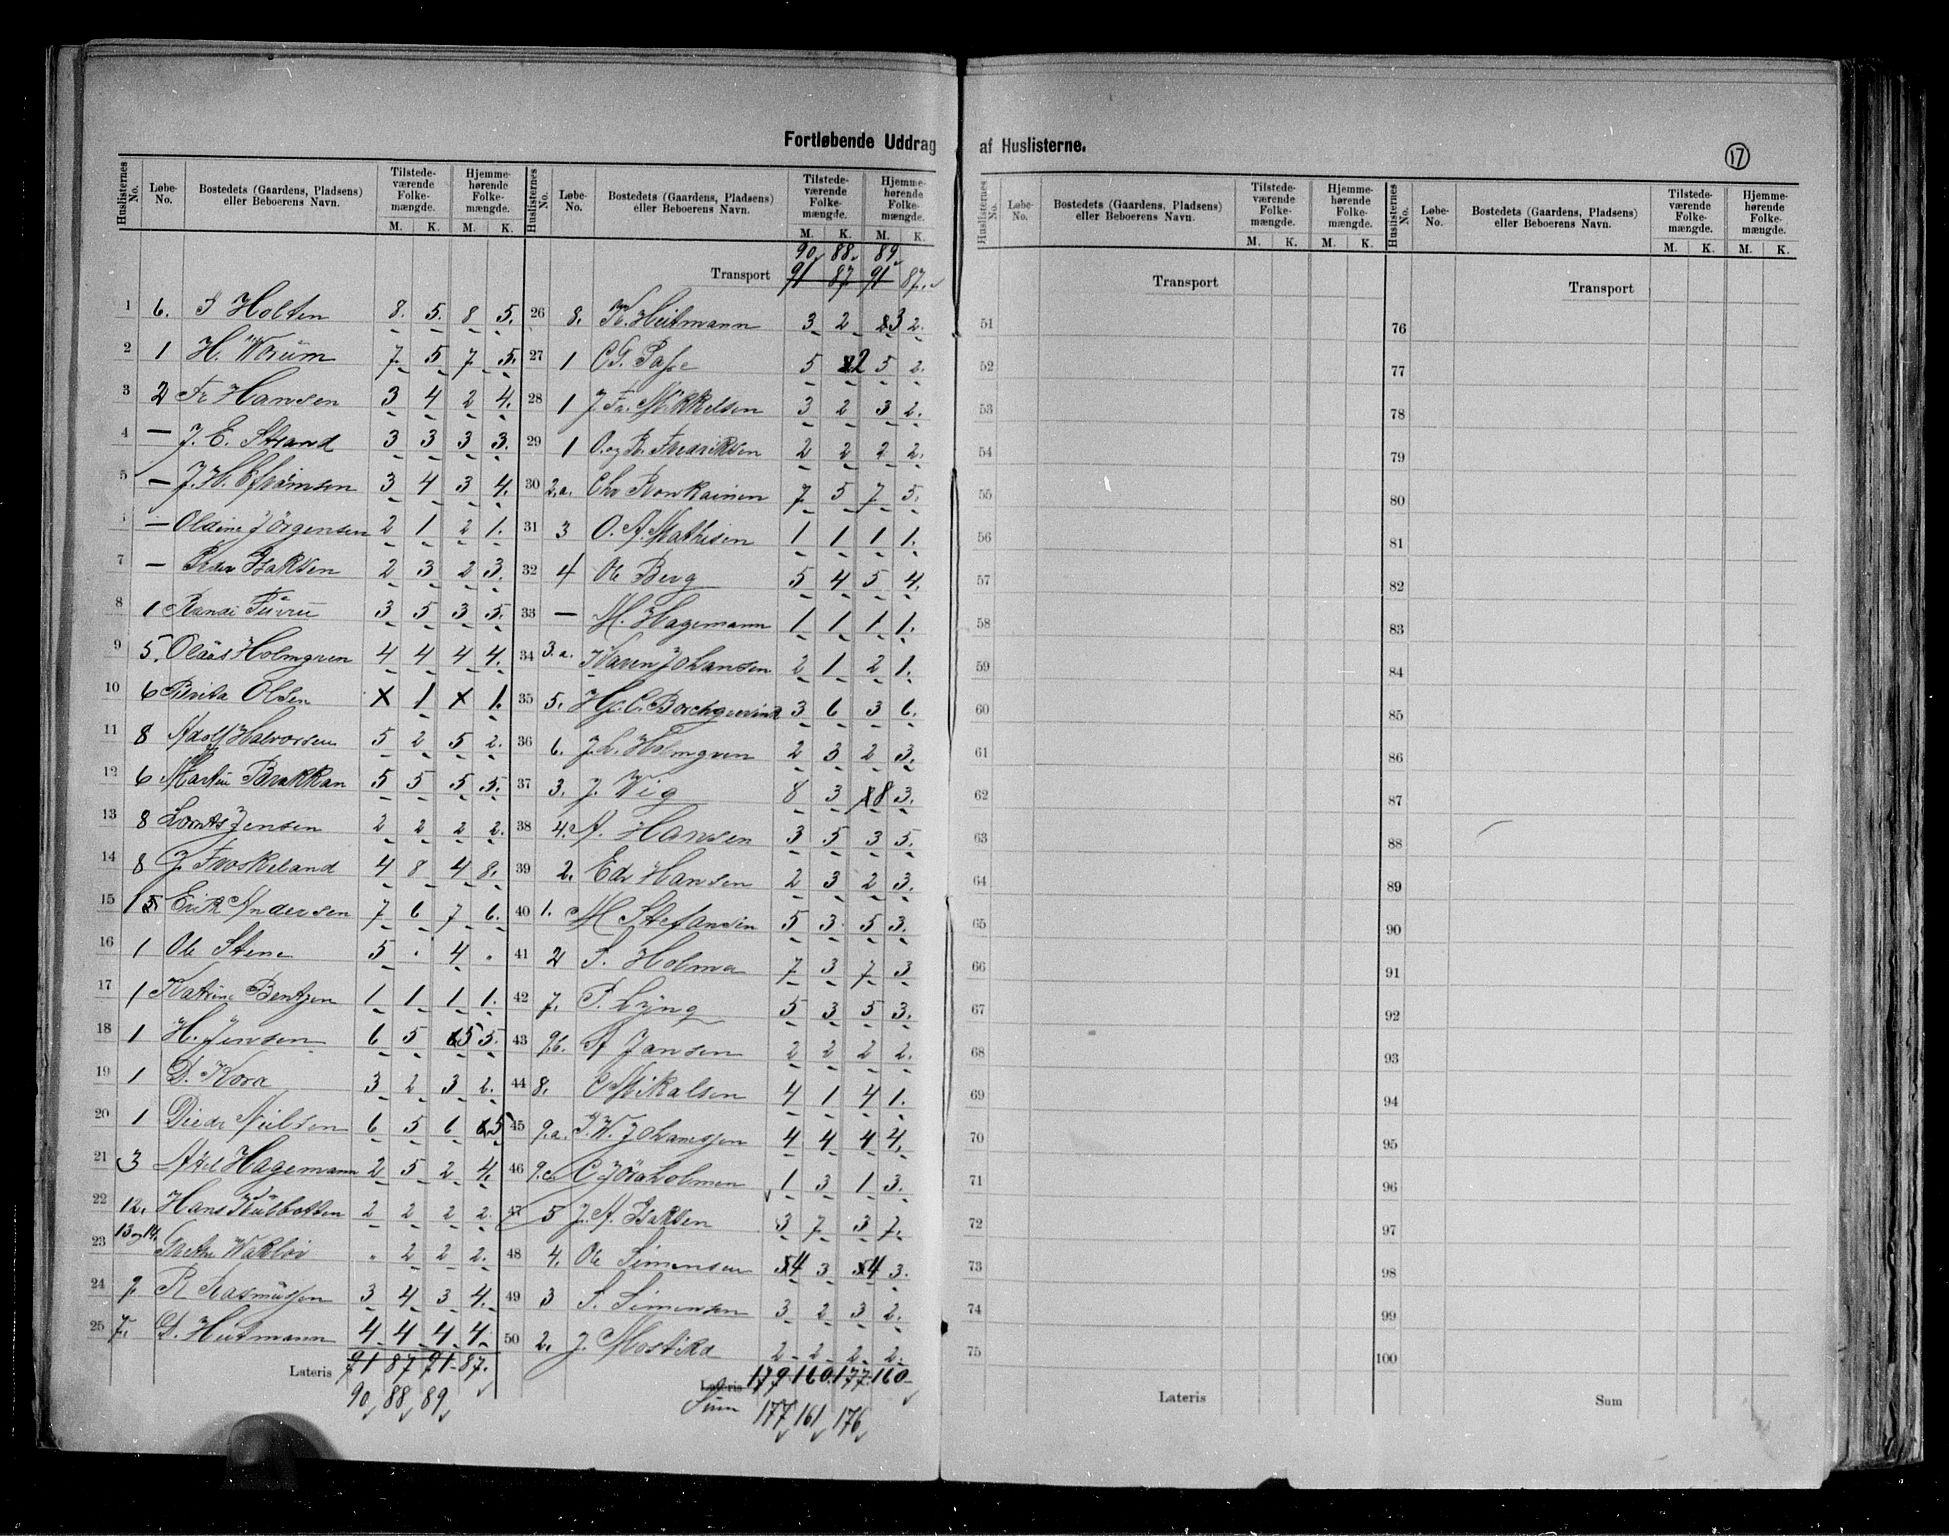 Fortløbende Uddrag af Huslisterne.
17
Huslisternes No. Løbe-No. Bostedets (Gaardens, Pladsens) eller Beboerens Navn. Tilstedeværende Folkemængde. M. K. Hjemmehørende Folkemængde. M. K.
1 6. Holten 8. 5. 8 5.
2 1 H. Worum 7 5 7 5.
3 2 Fr Hansen 3 4 2 4.
4 — J. E. Strand 3 3 3 3.
5 — J. H. Efraimsen 3 4 3 4.
— Oldine Jörgensen 2 1 2 1.
7 — Peder Isaksen 2 3 2 3.
8 1 3 5 3 5.
9 5. Olaüs Holmgren 4 4 4 4.
10 6 Berita Olsen x 1 x 1.
11 8 Adolf Halvorsen 5 2 5 2.
12 6 Martin Brakkan 5 5 5 5.
13 8 Lorents Jensen 2 2 2 2.
14 8 J. Froskeland 4 8 4 8.
15 15 Erik Andersen 7 6 7 6.
16 1 Ole Stene 5 · 4 ·
17 1 Katrine Bentzen 1 1 1 1.
18 1 H. Jensen 6 5 5 5.
19 1 D. Kora 3 2 3 2.
20 1 Peder Nielsen 6 5 6 5
21 3 Axel Hagemann 2 5 2 4.
22 12. Hans Külbotten 2 2 2 2.
23 13 og 14. Grethe 2 2 2.
24 9. R Rasmüssen 3 4 3 4.
25 7. D. Heitmann 4 4 4 4.
Lateris 91 87 91 87.
90 88 89
Huslisternes No. Løbe-No. Bostedets (Gaardens, Pladsens) eller Beboerens Navn. Tilstedeværende Folkemængde. M. K. Hjemmehørende Folkemængde. M. K.
90 88 89
Transport 91 87 91 87.
26 8. Heitmann 3 2 3 2.
27 1 5 2 5 2.
28 1 J Fr. Mikkelsen 3 2 3 2.
29 1 O. og Fredriksen 2 2 2 2.
30 2.a. Chr Ronkainen 7 5 7 5.
31 3 O. A. Mathisen 1 1 1 1.
32 4 Ole Berg 5 4 5 4.
33 — M. Hagemann 1 1 1 1.
34 3.a. Karen Johansen 2 1 2 1.
35 5. H. C. Borchgrevink 3 6 3 6.
36 6. J. L. Holmgren 2 3 2 3.
37 3. J. Wig 8 3 8 3.
38 4. A. Hansen 3 5 3 5.
39 2. Edv Hansen 2 3 2 3.
40 1. M Stefansen 5 3 5 3.
41 2 S. Holma 7 3 7 3
42 7. P. Lyng 5 3 5 3.
43 9b. A Jansen 2 2 2 2.
44 8. C Mikalsen 4 1 4 1.
45 9.a. J. W. Johannsen 4 4 4 4.
46 9.c. C. Joraholmen 1 3 1 3.
47 5 J. A. Isaksen 3 7 3 7.
48 4. Ole Simonsen 4 3 4 3.
49 3 S. Simonsen 3 2 3 2.
50 2. J. Mostika 2 2 2 2.
Lateris 179 160 177 160
Sum 177 161 176
Huslisternes No. Løbe-No. Bostedets (Gaardens, Pladsens) eller Beboerens Navn. Tilstedeværende Folkemængde. M. K. Hjemmehørende Folkemængde. M. K.
Transport
51
52
53
54
55
56
57
58
59
60
61
62
63
64
65
66
67
68
69
70
71
72
73
74
75
Lateris
Huslisternes No. Løbe-No. Bostedets (Gaardens, Pladsens) eller Beboerens Navn. Tilstedeværende Folkemængde. M. K. Hjemmehørende Folkemængde. M. K.
Transport
76
77
78
79
80
81
82
83
84
85
86
87
88
89
90
91
92
93
94
95
96
97
98
99
100
Sum